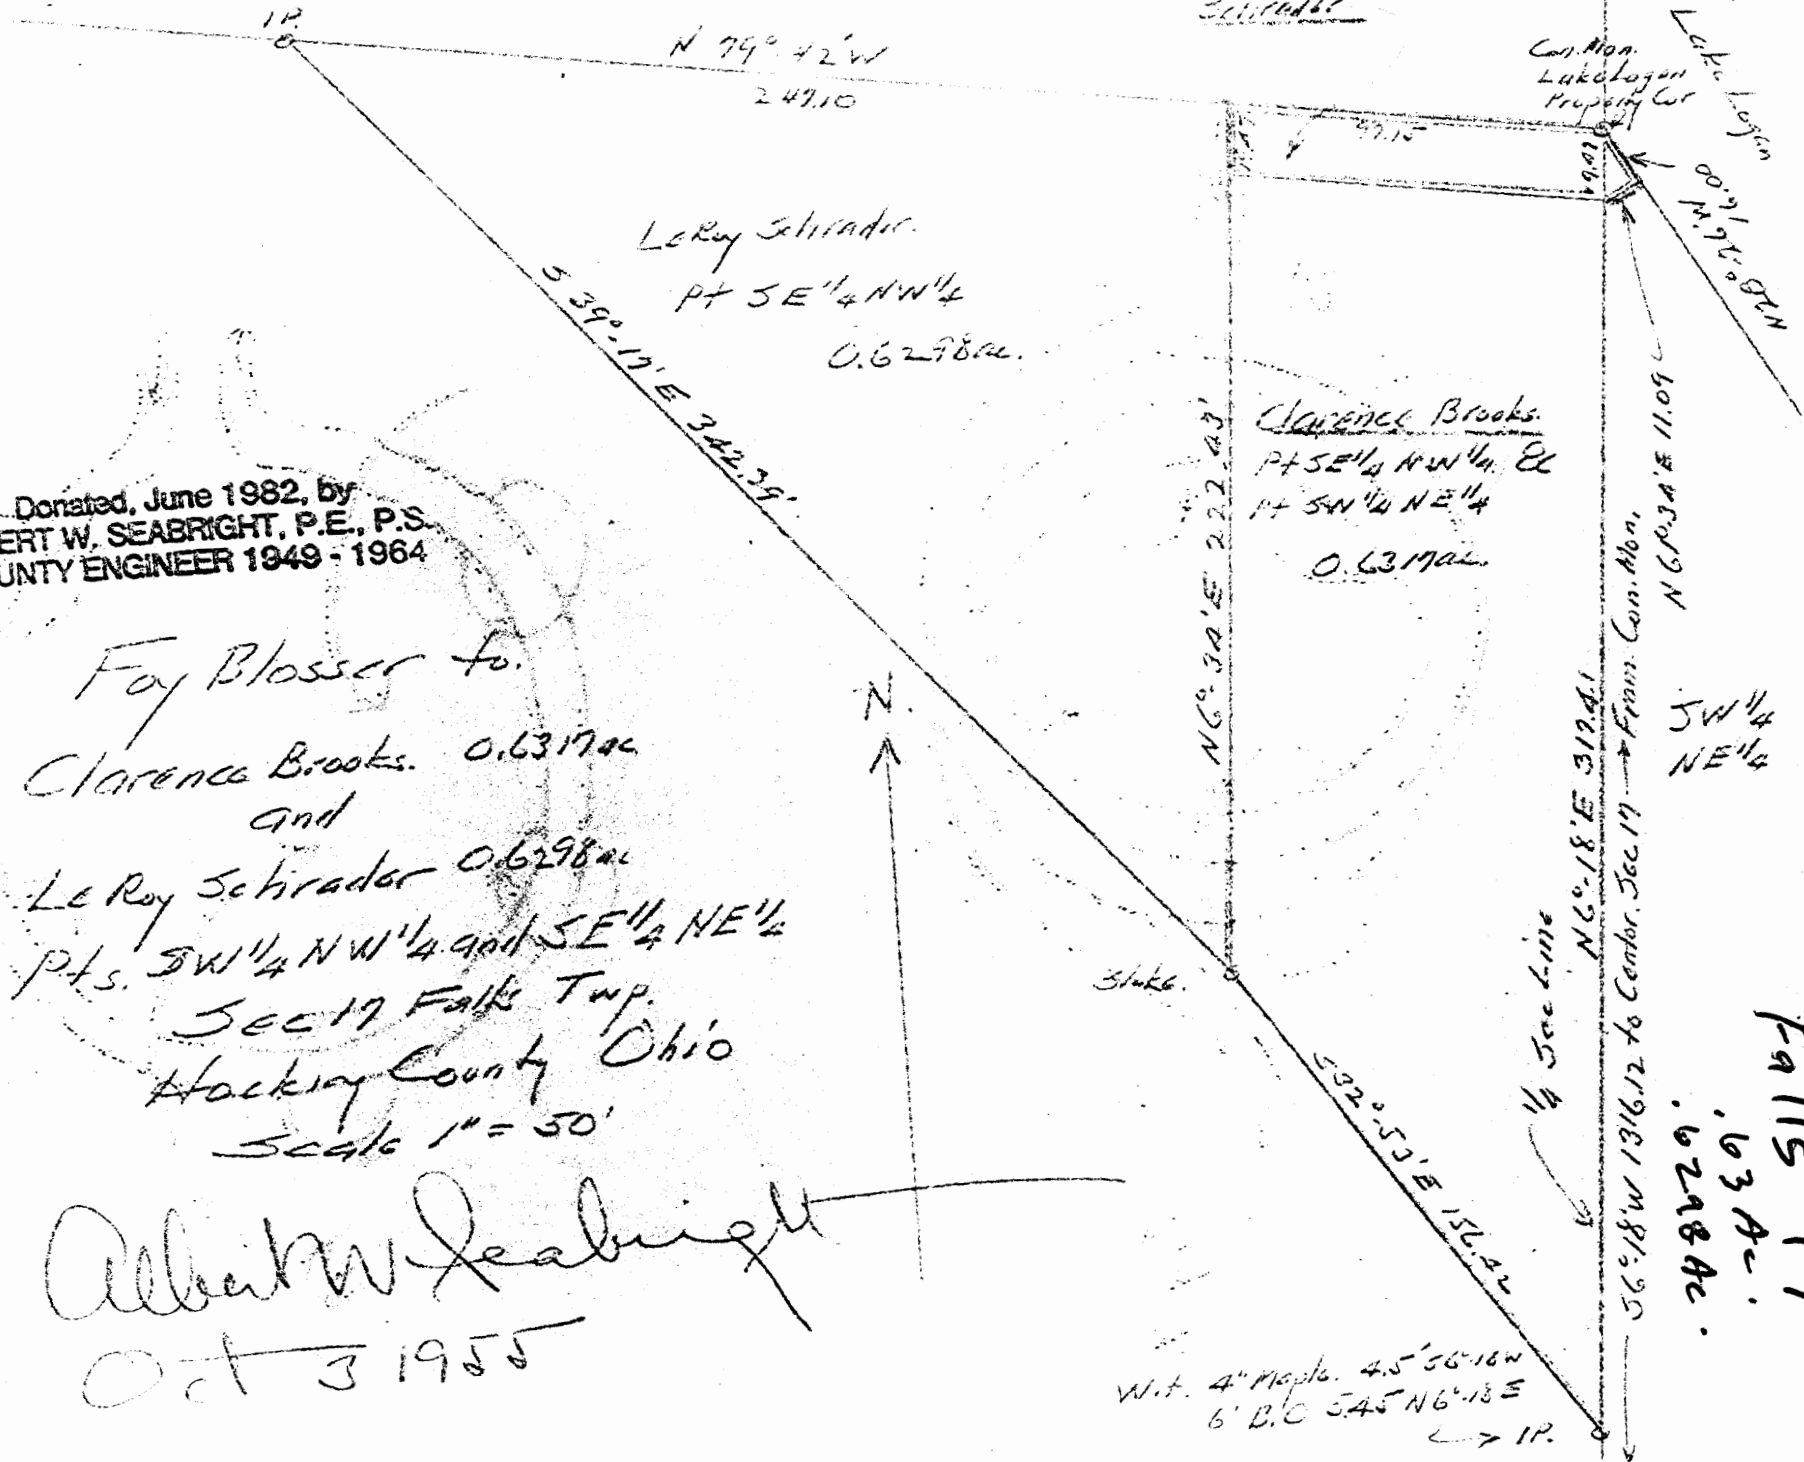 Schrader
I.P.
N 79°-42'W
247.10
Con. Mon.
Lake Logan
Property Cor
Lake Logan
97.15
16.00
LeRoy Schrader.
Pt SE 1/4 NW 1/4
0.6298 ac.
S 39°-17' E 342.39'
N6°-34'E 222.43'
Clarence Brooks.
Pt SE 1/4 NW 1/4 &
Pt SW 1/4 NE 1/4
0.6317 ac.
N 61°-34'E 11.09
Donated, June 1982, by
ERT W. SEABRIGHT, P.E., P.S.
UNTY ENGINEER 1949 - 1964
Foy Blosser to.
Clarence Brooks. 0.6317 ac
and
LeRoy Schrader 0.6298 ac
Pts. SW 1/4 NW 1/4 and SE 1/4 NE 1/4
Sec 17 Falls Twp.
Hocking County Ohio
Scale 1" = 50'
Albert W Seabright
Oct 3 1955
N.
Stake.
S 32°-53' E 156.42
1/4 Sec Line
N6°-18'E 317.41
S6°-18'W 1316.12 to Center. Sec 17 From Con. Mon.
SW 1/4
NE 1/4
Falls 17
.63 Ac.
.6298 Ac.
Wit. 4" Maple. 4.5' S6°-18W
6" B.O 5.45 N6°-18E
I.P.